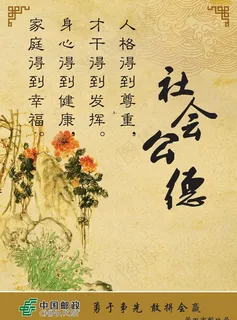 社会公德
人格得到尊重,
才干得到发挥。
身心得到健康,
家庭得到幸福。
中国邮政
CHINA POST
勇于争先 敢拼会赢